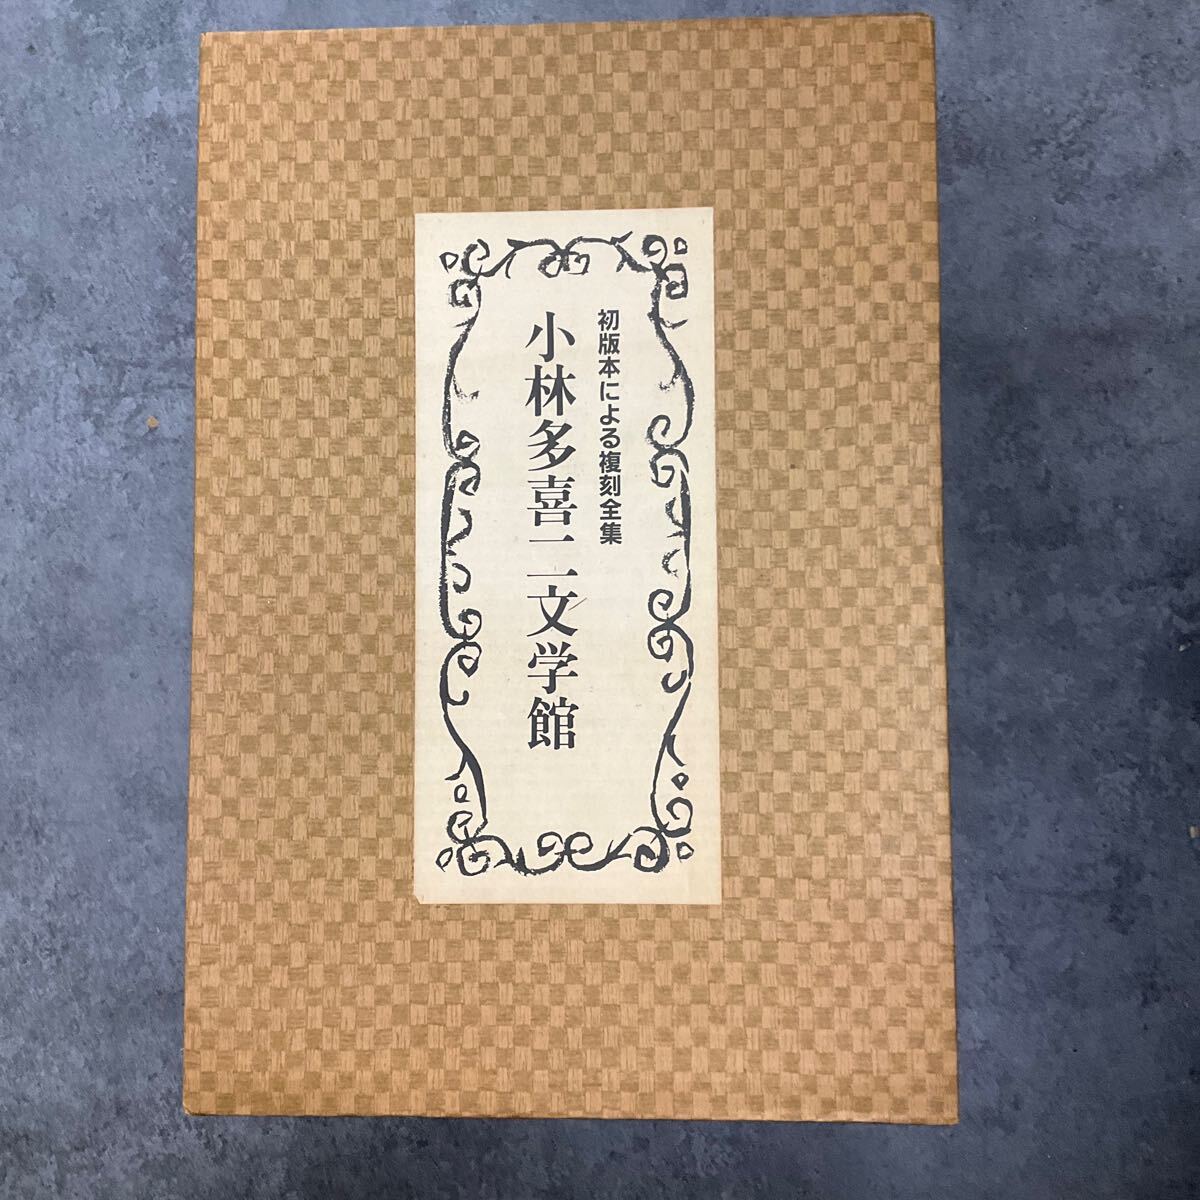 初版本による複刻全集
小林多喜二文学館